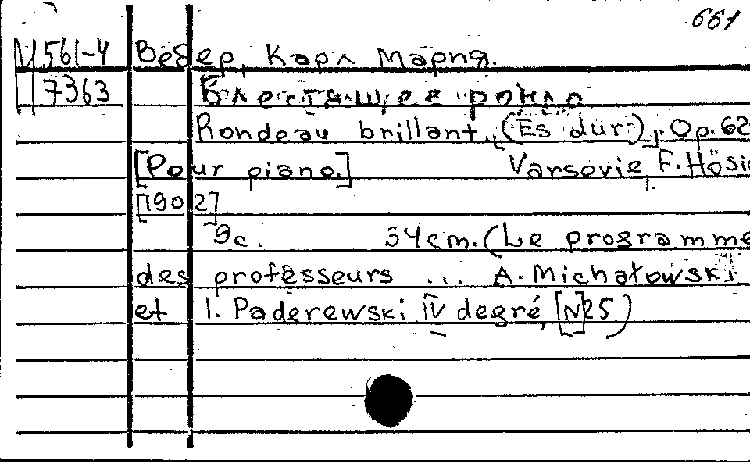 661
М 561-4 Вебер, Карл Мария.
Ц 7363 Блестящее рондо
Rondeau brillant, (Es dur), Op. 62
[Pour piano.] Varsovie, F. Hösi
[1902]
9с. 34cm. (Le programme
des professeurs ... A. Michałowski
et I. Paderewski IV degré, [N25)